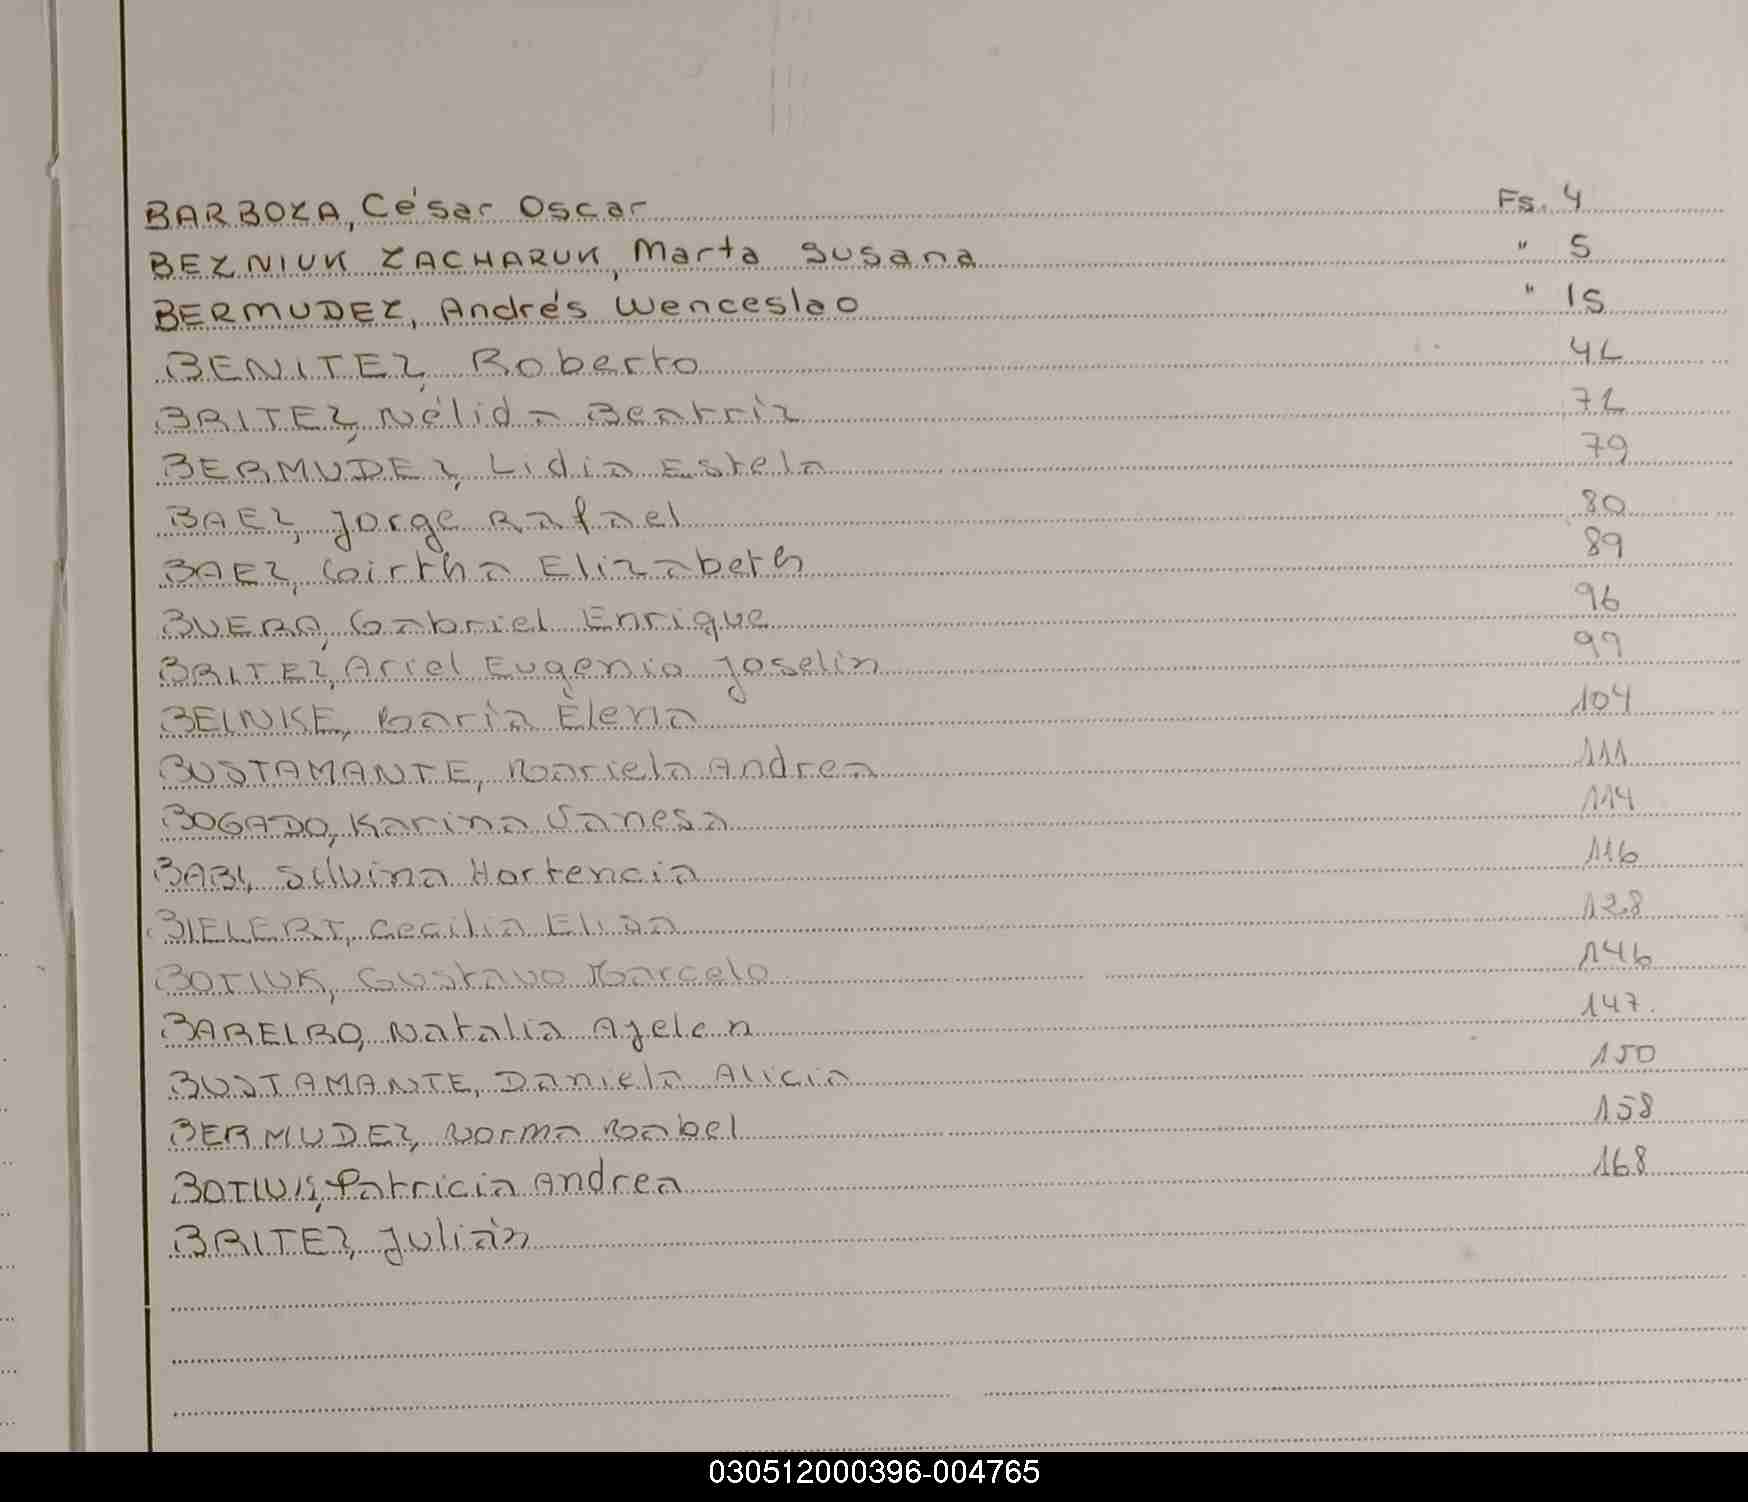 BARBOZA, César Oscar Fs. 4
BEZNIUK ZACHARUK, Marta Susana " 5
BERMUDEZ, Andrés Wenceslao " 15
BENITEZ, Roberto 42
BRITEZ, Nélida Beatriz 72
BERMUDEZ, Lidia Estela 79
BAEZ, Jorge Rafael 80
BAEZ, Mirtha Elizabeth 89
BUERA, Gabriel Enrique 96
BRITEZ, Ariel Eugenio Joselin 99
BEINKE, María Elena 104
BUSTAMANTE, Mariela Andrea 111
BOGADO, Karina Vanesa 114
BABI, Silvina Hortencia 116
BIELERT, Cecilia Elisa 128
BOTIUK, Gustavo Marcelo 146
Natalia Ayelen 147.
BUSTAMANTE, Daniela Alicia 150
BERMUDEZ, Norma Mabel 158
BOTIUK, Patricia Andrea 168
BRITEZ, Julián
030512000396-004765